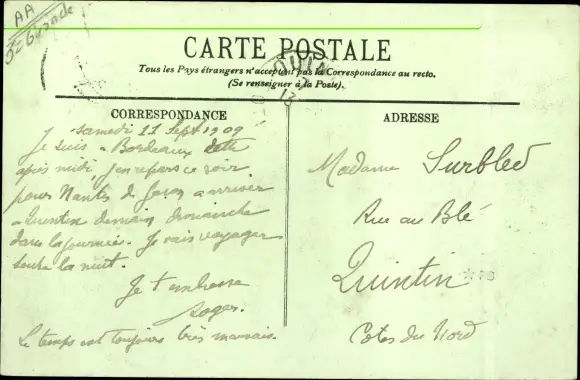 AA
CARTE POSTALE
Tous les Pays étrangers n'acceptent pas la Correspondance au recto.
(Se renseigner à la Poste).
CORRESPONDANCE
Samedi 11 Sept 1909
Je suis a Bordeaux cette
après midi, j'en repars ce soir
pour Nantes de façon a arriver
a Quintin demain dimanche
dans la journée. Je vais voyager
toute la nuit.
Je t'embrasse
Roger.
Le temps est toujours très mauvais.
ADRESSE
Madame Surbled
Rue au Blé
Quintin
Cotes du Nord